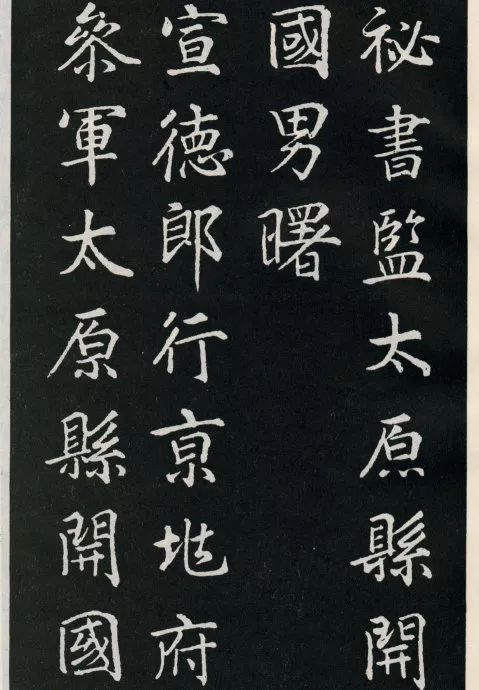 祕書監太原縣開
國男曙
宣徳郎行亰兆府
叅軍太原縣開國